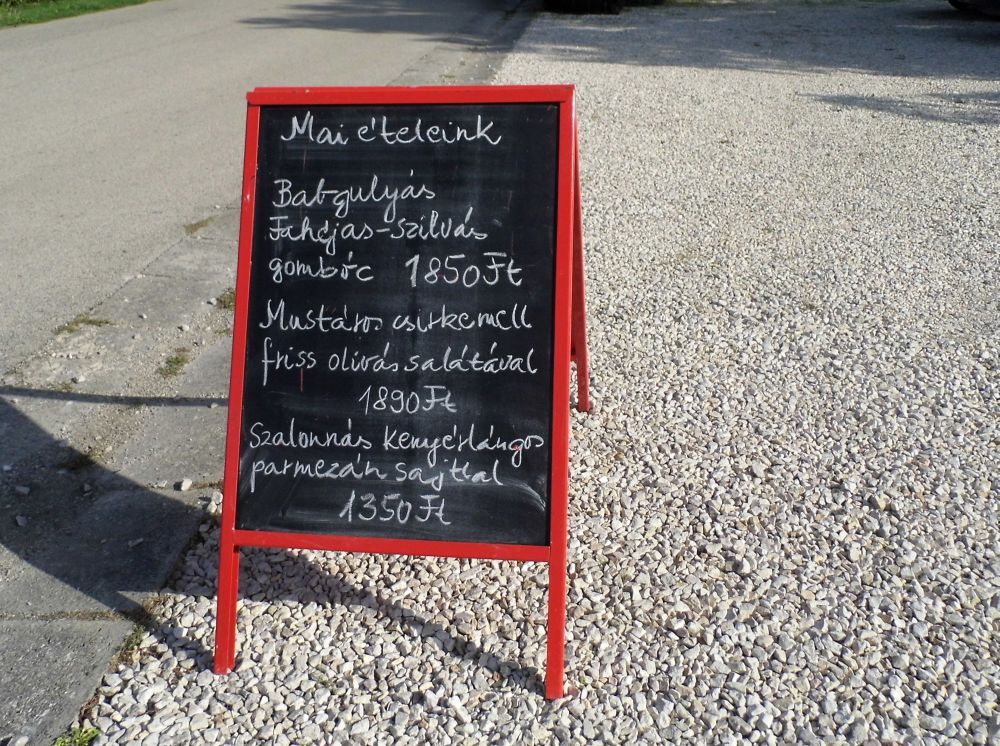 Mai ételeink
Babgulyás
Fahéjas-szilvás
gombóc 1850Ft
Mustáros csirkemell
friss olivás salátával
1890Ft
Szalonnás kenyérlángos
parmezán sajttal
1350Ft